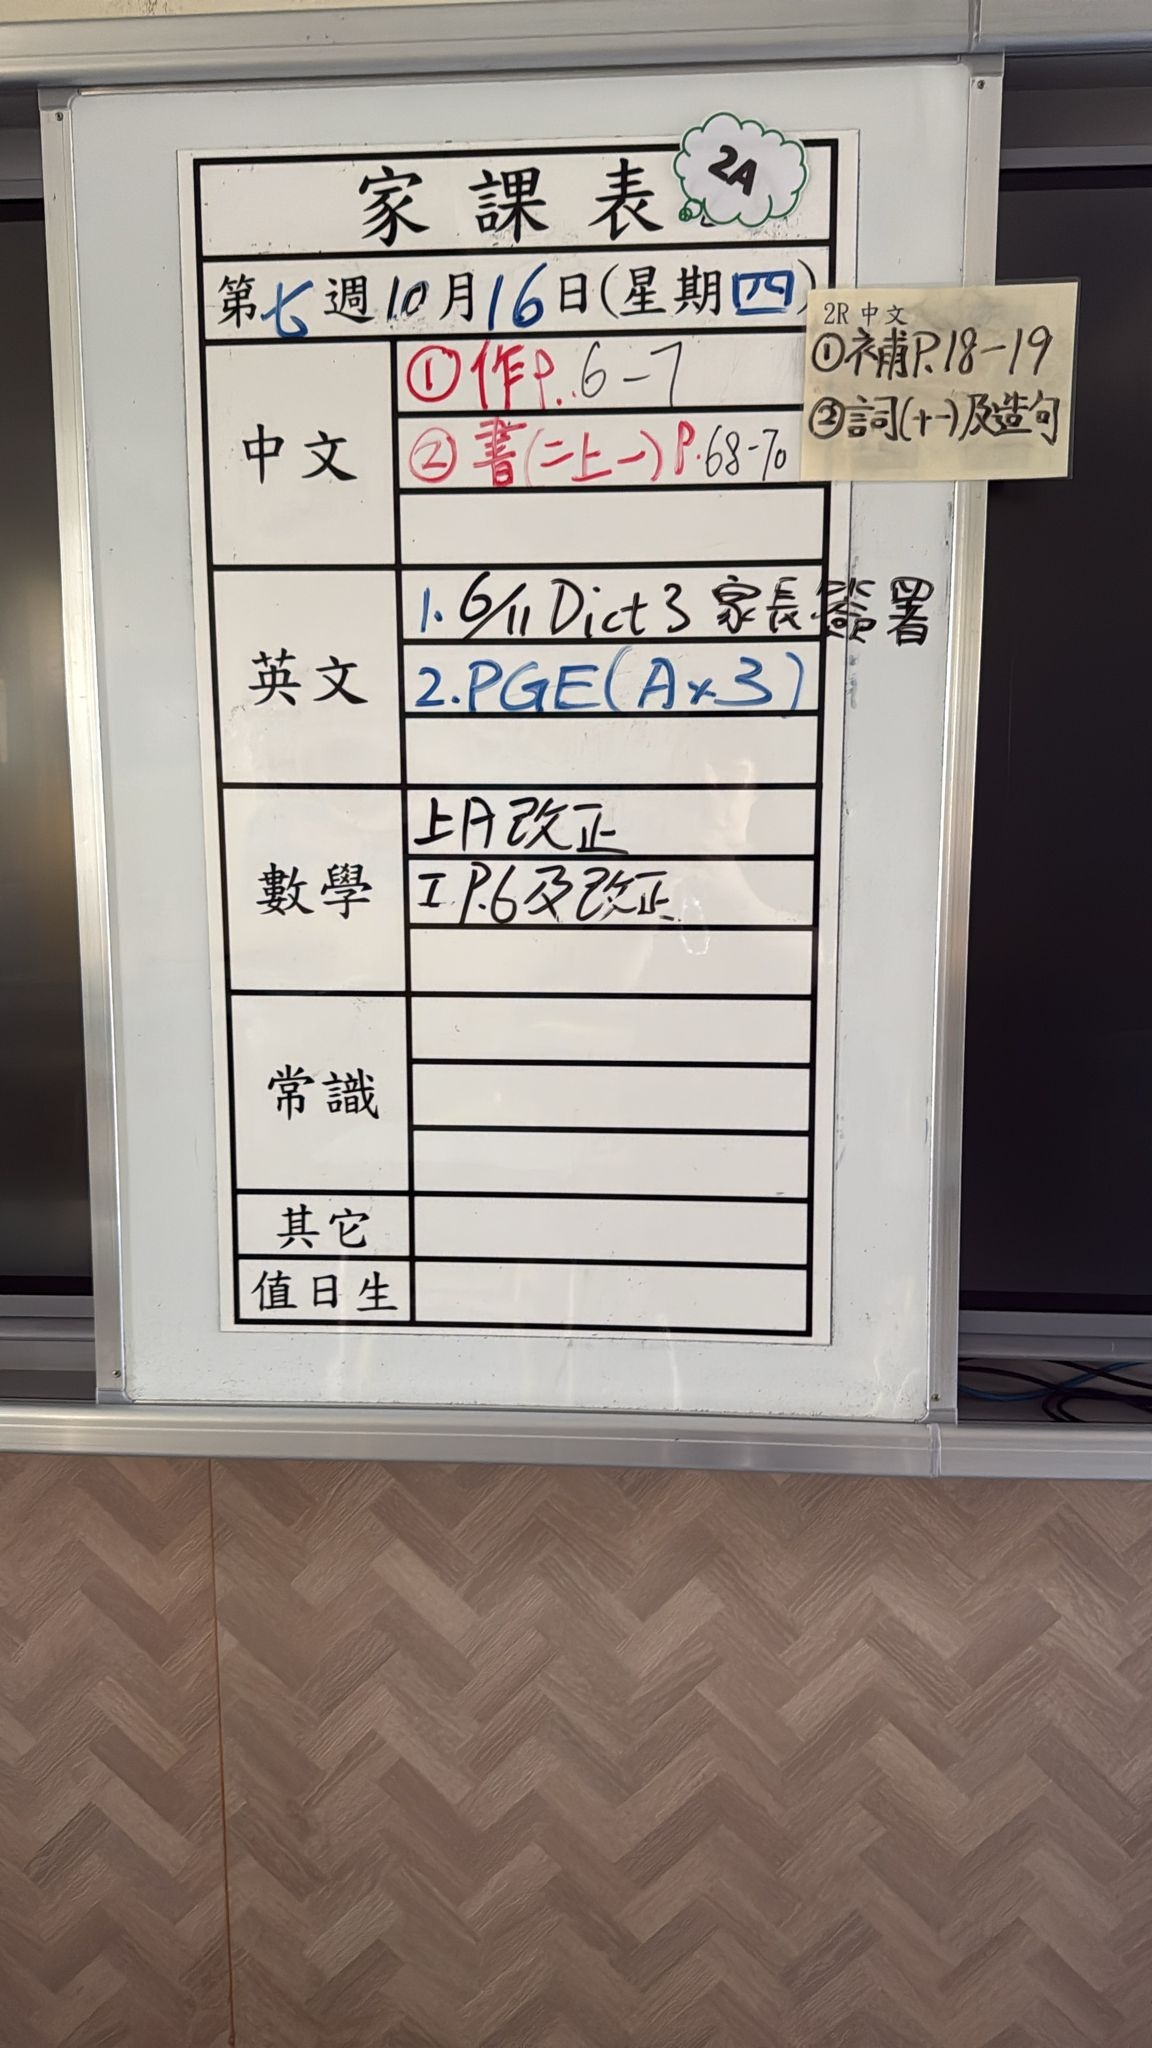 家課表
2A
第七週10月16日(星期四)
2R 中文
①補P.18-19
②詞(十一)及造句
中文
①作P. 6-7
②書(二上一) P.68-70
英文
1. 6/11 Dict 3 家長簽署
2. PGE(A×3)
數學
上A改正
工P.6及改正
常識
其它
值日生